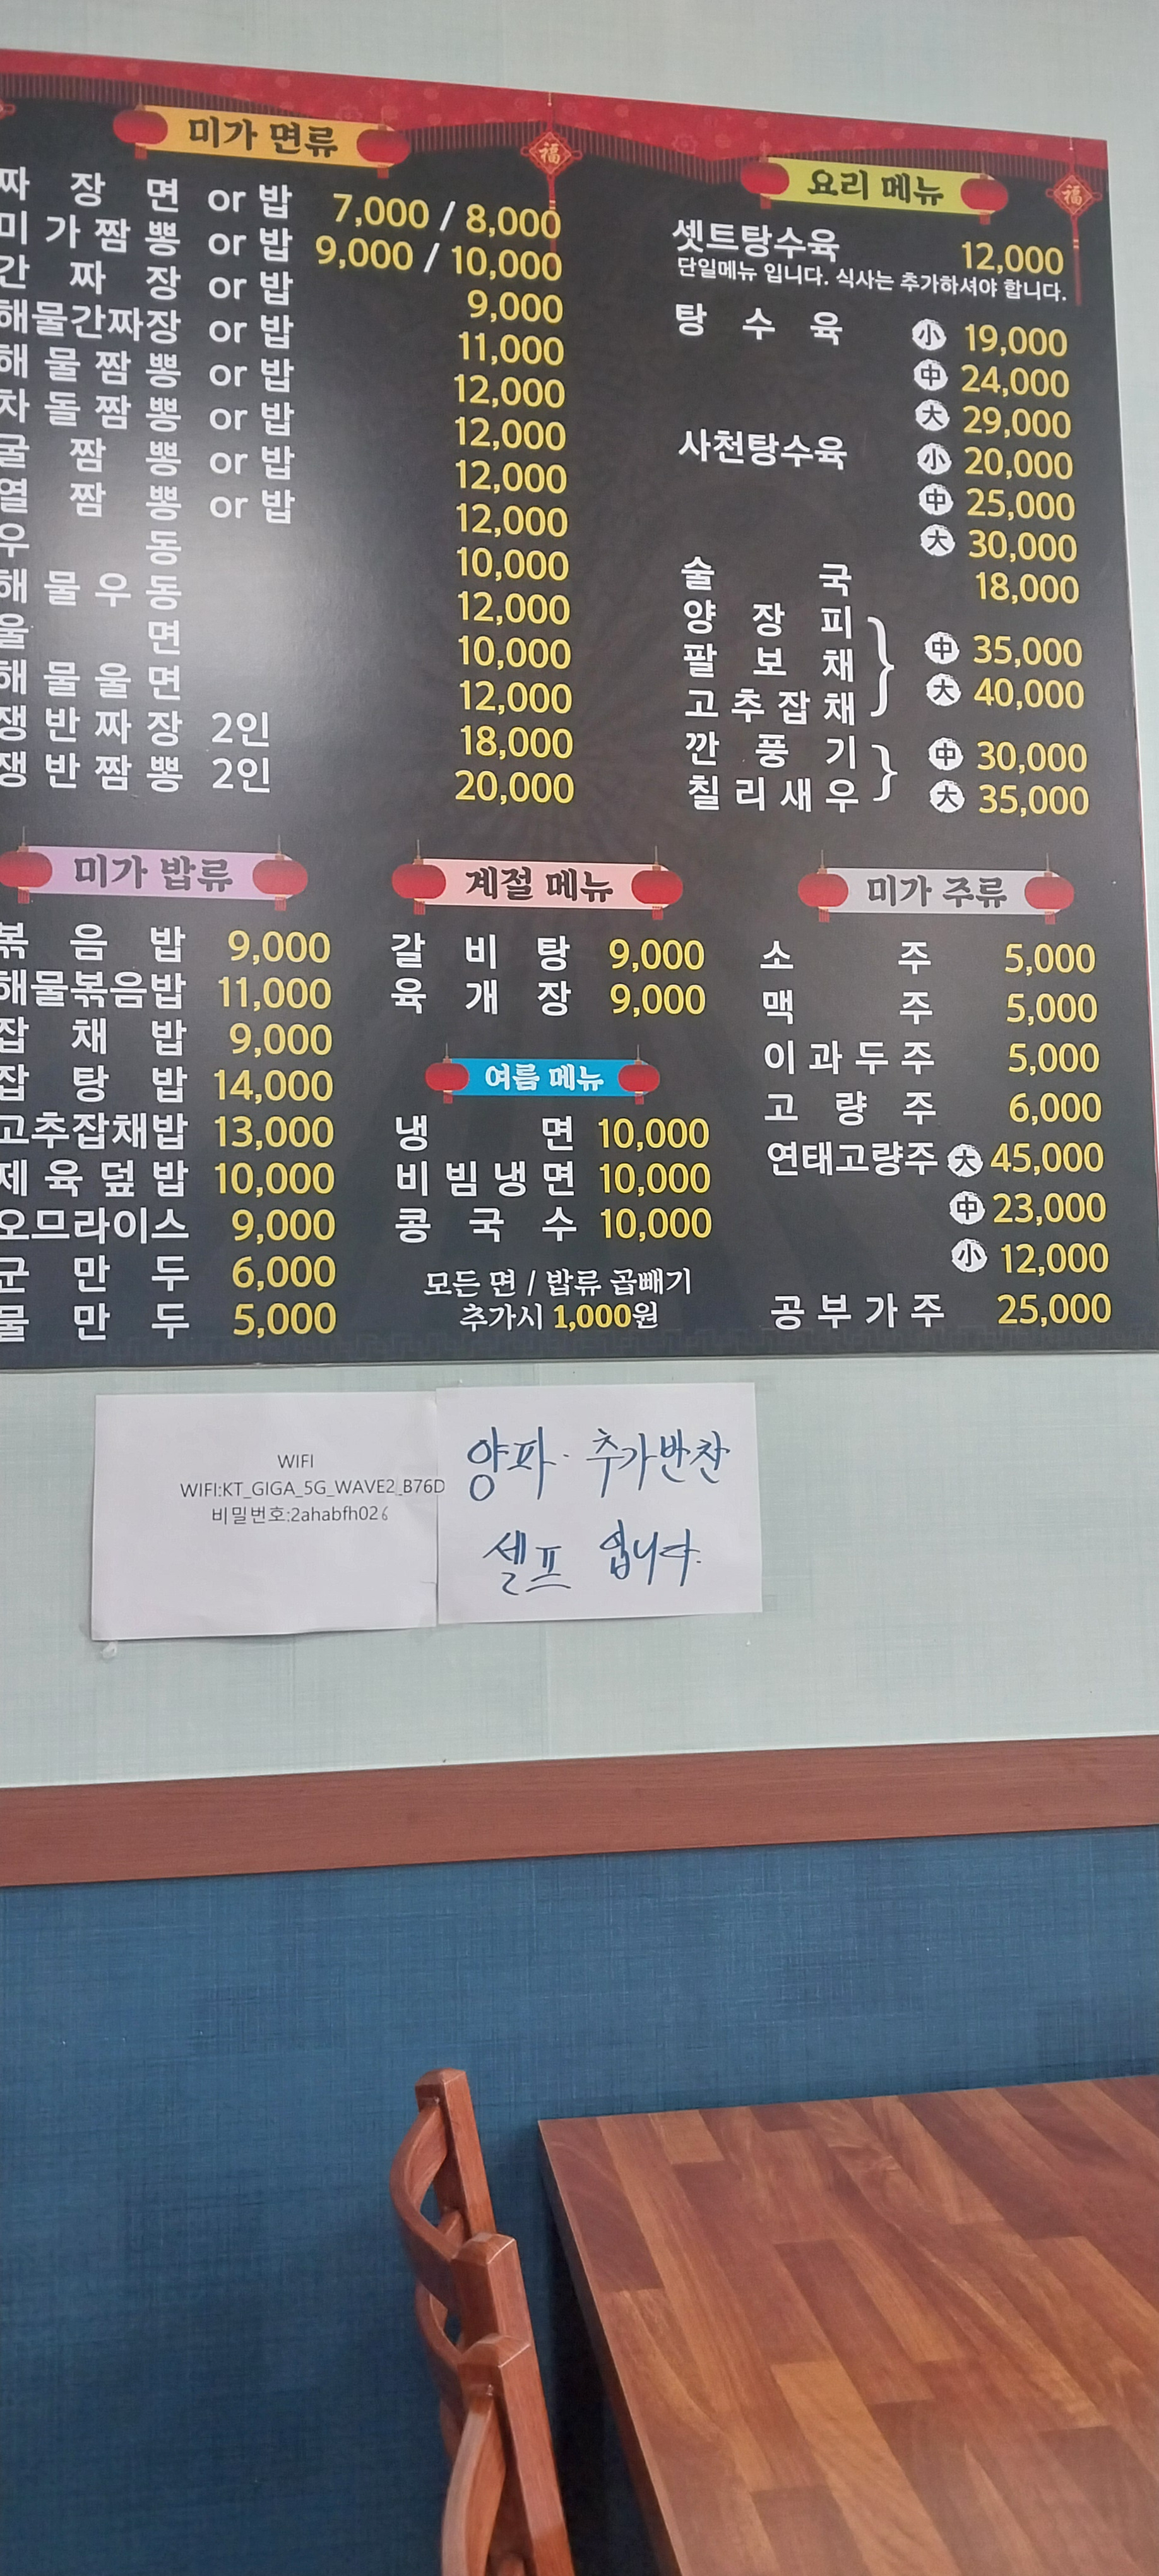 미가 면류
짜장면 or 밥 7,000 / 8,000
미가짬뽕 or 밥 9,000 / 10,000
간짜장 or 밥 9,000
해물간짜장 or 밥 11,000
해물짬뽕 or 밥 12,000
차돌짬뽕 or 밥 12,000
굴짬뽕 or 밥 12,000
열짬뽕 or 밥 12,000
우동 10,000
해물우동 12,000
울면 10,000
해물울면 12,000
쟁반짜장 2인 18,000
쟁반짬뽕 2인 20,000
福
福
요리 메뉴
셋트탕수육 12,000
단일메뉴 입니다. 식사는 추가하셔야 합니다.
탕수육 小 19,000
中 24,000
大 29,000
사천탕수육 小 20,000
中 25,000
大 30,000
술국 18,000
양장피
팔보채
고추잡채
中 35,000
大 40,000
깐풍기
칠리새우
中 30,000
大 35,000
미가 밥류
볶음밥 9,000
해물볶음밥 11,000
잡채밥 9,000
잡탕밥 14,000
고추잡채밥 13,000
제육덮밥 10,000
오므라이스 9,000
군만두 6,000
물만두 5,000
계절 메뉴
갈비탕 9,000
육개장 9,000
여름 메뉴
냉면 10,000
비빔냉면 10,000
콩국수 10,000
모든 면 / 밥류 곱빼기
추가시 1,000원
미가 주류
소주 5,000
맥주 5,000
이과두주 5,000
고량주 6,000
연태고량주 大 45,000
中 23,000
小 12,000
공부가주 25,000
WIFI
WIFI:KT_GIGA_5G_WAVE2_B76D
비밀번호:2ahabfh026
양파. 추가반찬
셀프 입니다.